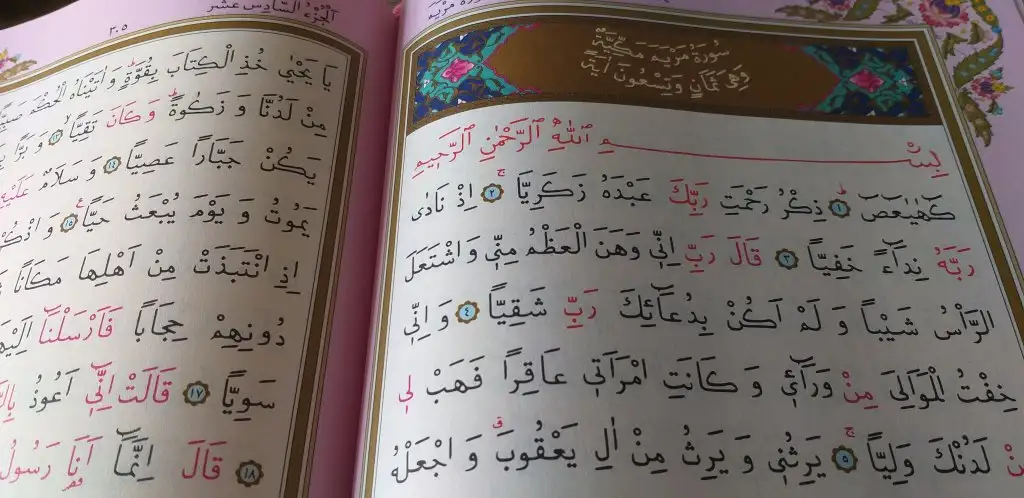 سُورَةُ مَرْيَمَ مَكِّيَّةٌ
وَهِيَ ثَمَانٍ وَتِسْعُونَ اٰيَةً
بِسْــــــــمِ اللّٰهِ الرَّحْمٰنِ الرَّحٖيمِ
كٓهٰيٰعٓصٓ ﴿١﴾ ذِكْرُ رَحْمَتِ رَبِّكَ عَبْدَهُ زَكَرِيَّا ﴿٢﴾ اِذْ نَادٰى
رَبَّهُ نِدَٓاءً خَفِيًّا ﴿٣﴾ قَالَ رَبِّ اِنّٖى وَهَنَ الْعَظْمُ مِنّٖى وَ اشْتَعَلَ
الرَّأْسُ شَيْبًا وَ لَمْ اَكُنْ بِدُعَٓائِكَ رَبِّ شَقِيًّا ﴿٤﴾ وَ اِنّٖى
خِفْتُ الْمَوَالِىَ مِنْ وَرَٓائٖى وَ كَانَتِ امْرَاَتٖى عَاقِرًا فَهَبْ لٖى
مِنْ لَدُنْكَ وَلِيًّا ﴿٥﴾ يَرِثُنٖى وَ يَرِثُ مِنْ اٰلِ يَعْقُوبَ وَ اجْعَلْهُ
اَلْجُزْءُ السَّادِسَ عَشَرَ
٣٠٥
يَا يَحْيٰى خُذِ الْكِتَابَ بِقُوَّةٍ وَ اٰتَيْنَاهُ الْحُكْمَ صَبِيًّا
مِنْ لَدُنَّا وَ زَكٰوةً وَ كَانَ تَقِيًّا ﴿١٣﴾ وَ بَرًّا
يَكُنْ جَبَّارًا عَصِيًّا ﴿١٤﴾ وَ سَلَامٌ عَلَيْهِ
يَمُوتُ وَ يَوْمَ يُبْعَثُ حَيًّا ﴿١٥﴾ وَ اذْكُرْ
اِذِ انْتَبَذَتْ مِنْ اَهْلِهَا مَكَانًا
دُونِهِمْ حِجَابًا فَاَرْسَلْنَٓا اِلَيْهَا
سَوِيًّا ﴿١٧﴾ قَالَتْ اِنّٖٓى اَعُوذُ
﴿١٨﴾ قَالَ اِنَّمَٓا اَنَا رَسُولُ